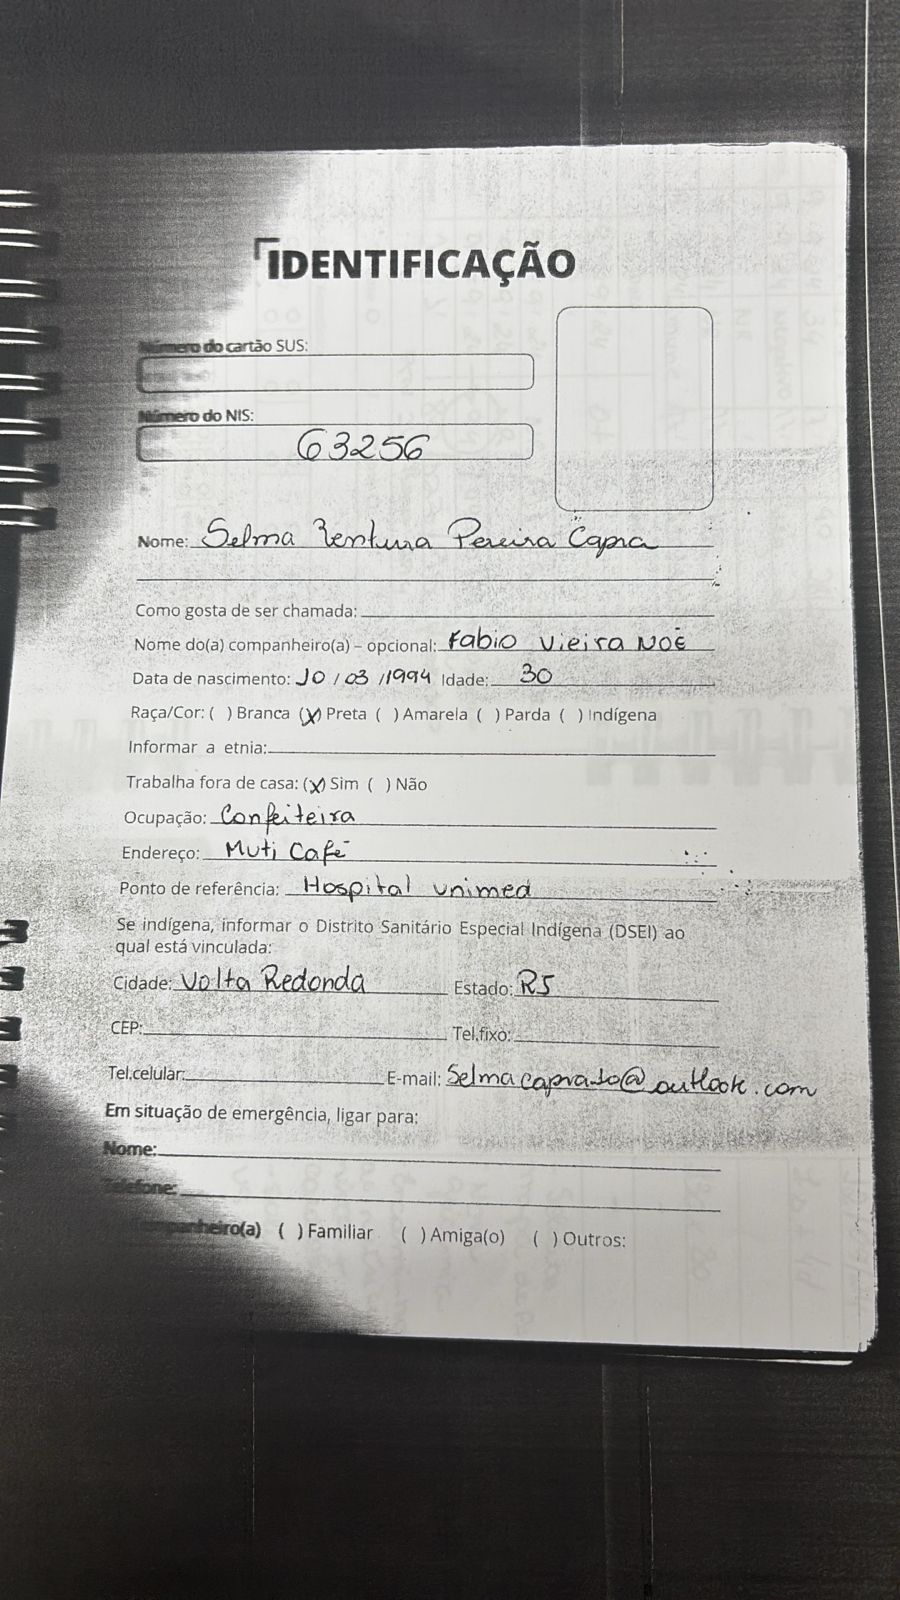 IDENTIFICAÇÃO
Número do cartão SUS:
Número do NIS:
63256
Nome: Selma Ventura Pereira Capra
Como gosta de ser chamada:
Nome do(a) companheiro(a) – opcional: Fabio Vieira Noé
Data de nascimento: 10/03/1994 Idade: 30
Raça/Cor: ( ) Branca (X) Preta ( ) Amarela ( ) Parda ( ) Indígena
Informar a etnia:
Trabalha fora de casa: (X) Sim ( ) Não
Ocupação: Confeiteira
Endereço: Muti Café
Ponto de referência: Hospital unimed
Se indígena, informar o Distrito Sanitário Especial Indígena (DSEI) ao
qual está vinculada:
Cidade: Volta Redonda Estado: RJ
CEP: Tel.fixo:
Tel.celular: E-mail: Selmacapra10@outlook.com
Em situação de emergência, ligar para:
Nome:
Telefone:
Companheiro(a) ( ) Familiar ( ) Amiga(o) ( ) Outros: